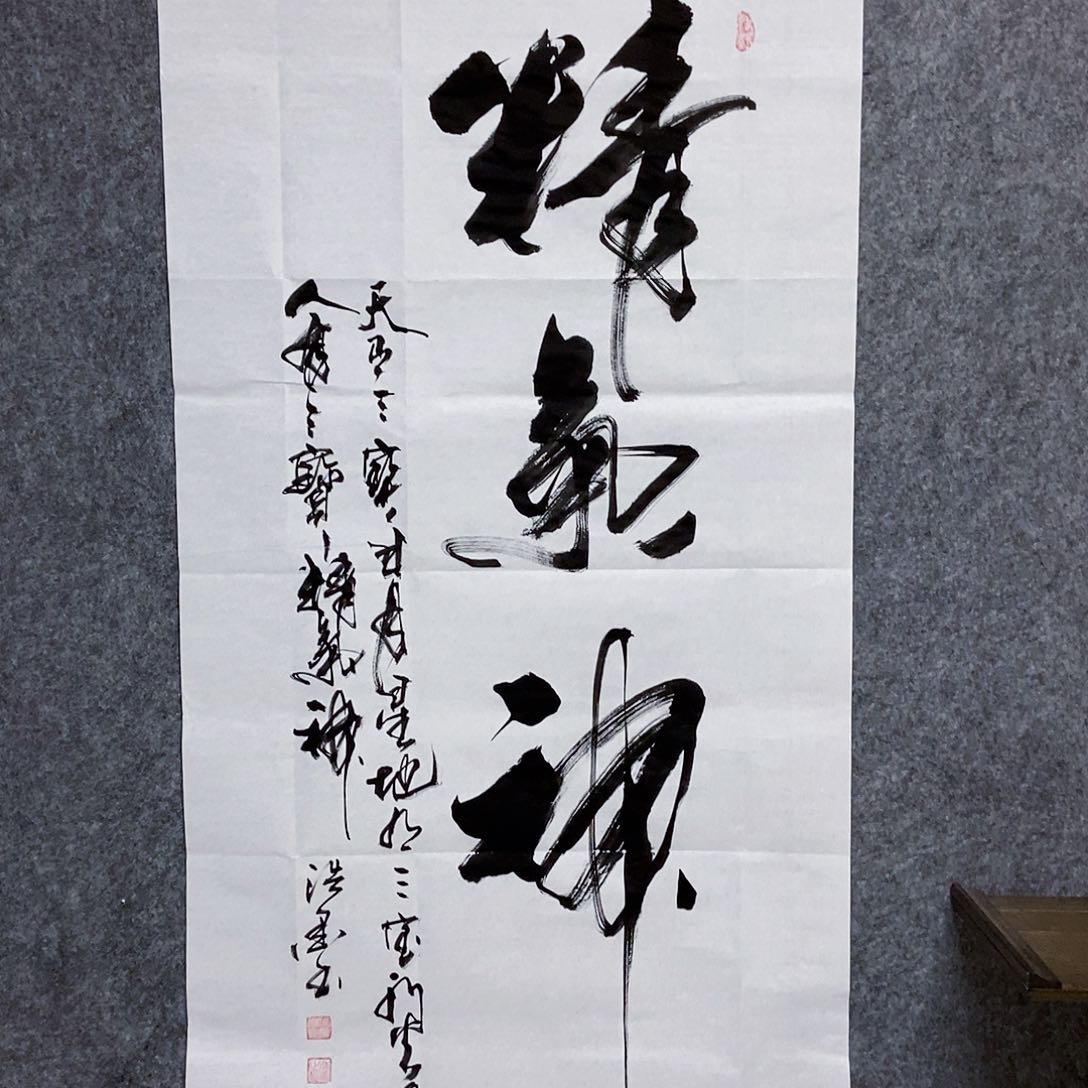 精氣神
天有三寶日月星地有三宝水火
人有三寶精氣神
浩墨书